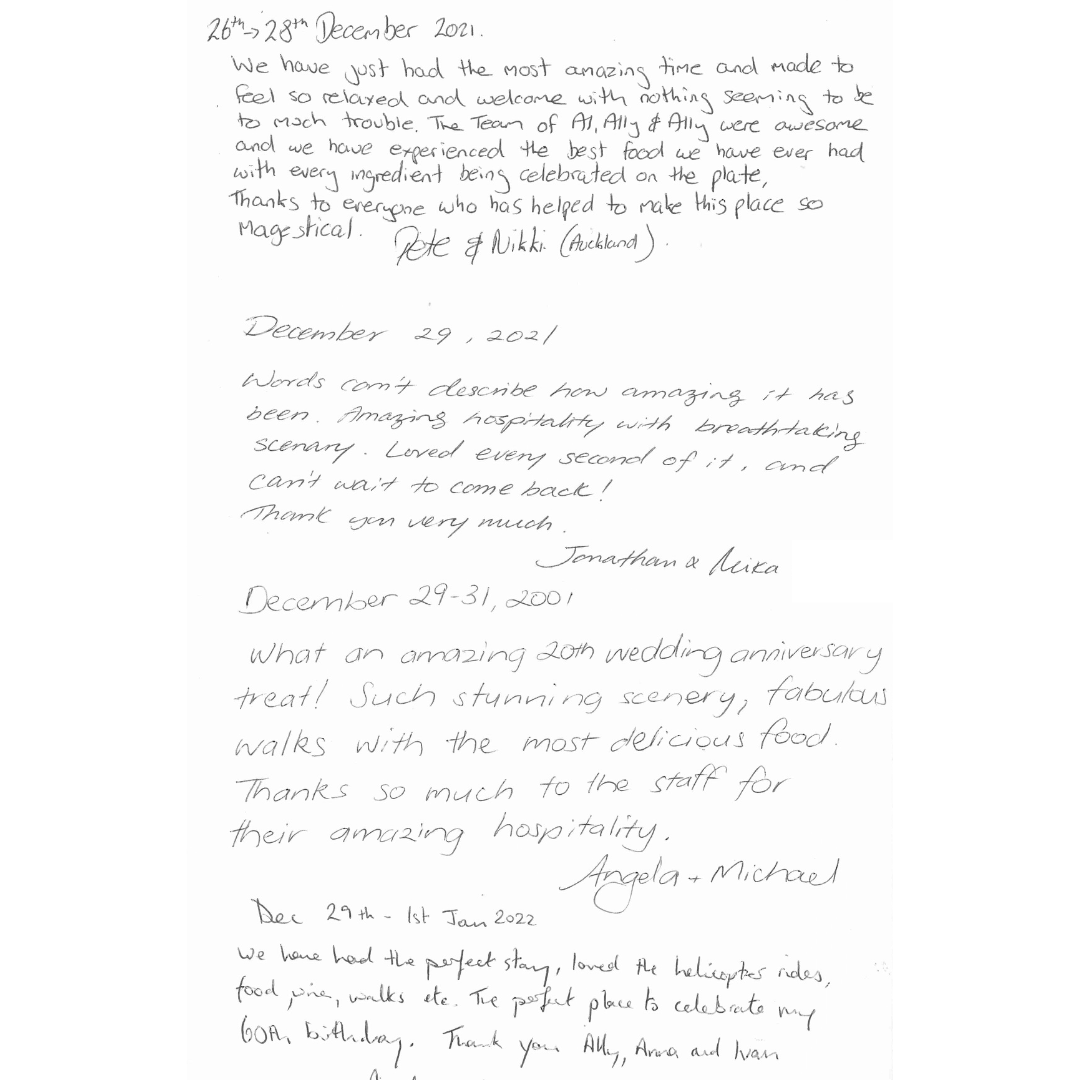 26th → 28th December 2021.
We have just had the most amazing time and made to
feel so relaxed and welcome with nothing seeming to be
to much trouble. The Team of Al, Ally & Ally were awesome
and we have experienced the best food we have ever had
with every ingredient being celebrated on the plate,
Thanks to everyone who has helped to make this place so
Magestical. Pete & Nikki (Auckland).
December 29, 2021
Words can't describe how amazing it has
been. Amazing hospitality with breathtaking
scenary. Loved every second of it, and
can't wait to come back!
Thank you very much.
Jonathan &
December 29-31, 2001
What an amazing 20th wedding anniversary
treat! Such stunning scenery, fabulous
walks with the most delicious food.
Thanks so much to the staff for
their amazing hospitality.
Angela + Michael
Dec 29th - 1st Jan 2022
We have had the perfect stay, loved the helicopter rides,
food, wine, walks etc. The perfect place to celebrate my
60th birthday. Thank you Ally, Anna and Ivan